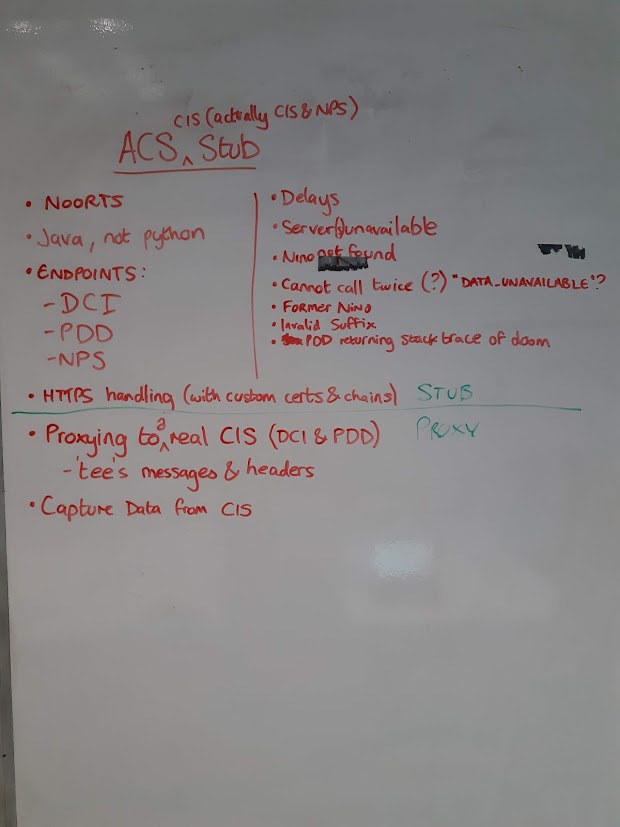 CIS (actually CIS & NPS)
ACS ^ Stub
• NoORTS
• Java, not python
• ENDPOINTS:
- DCI
- PDD
- NPS
• HTTPS handling (with custom certs & chains)
• Delays
• Server(s) unavailable
• Nino not found
• Cannot call twice (?) "DATA_UNAVAILABLE"?
• Former Nino
• Invalid Suffix
• PDD returning stack trace of doom
STUB
PROXY
• Proxying to ^a real CIS (DCI & PDD)
- 'tee's messages & headers
• Capture Data from CIS